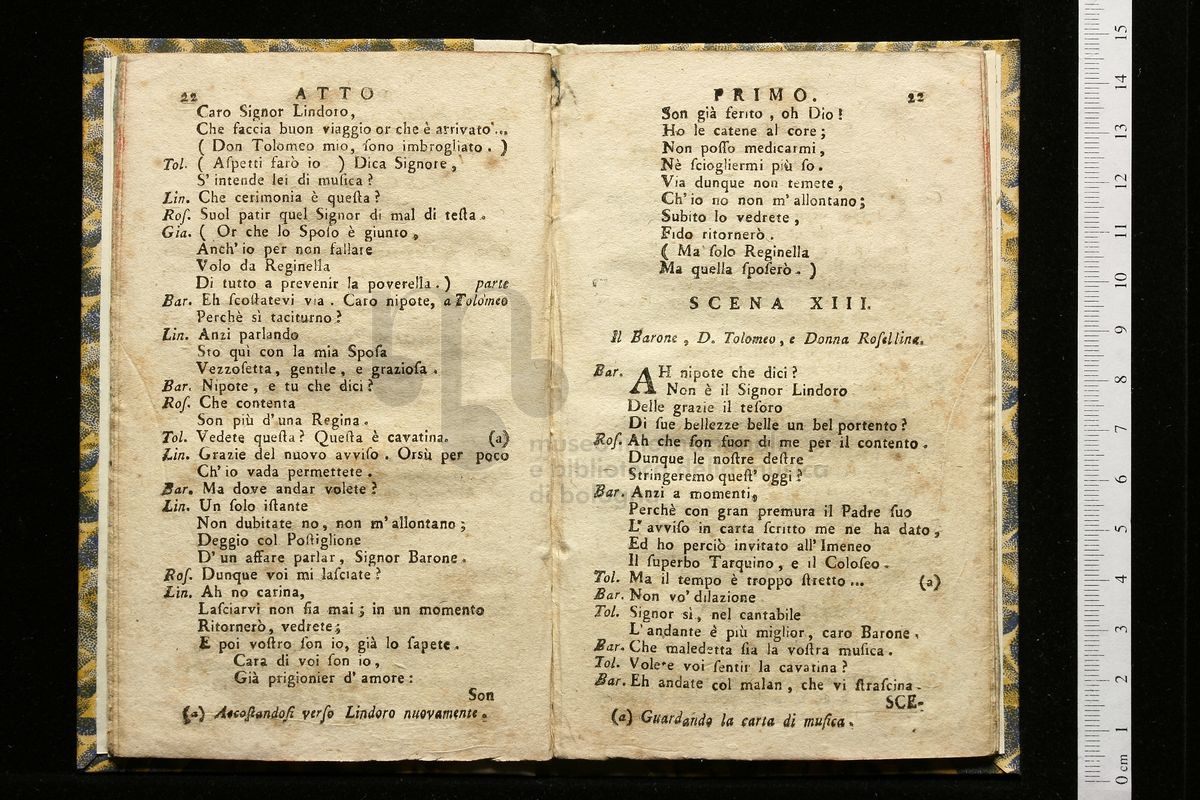 22 ATTO
Caro Signor Lindoro,
Che faccia buon viaggio or che è arrivato...
( Don Tolomeo mio, ſono imbrogliato. )
Tol. ( Aſpetti farò io ) Dica Signore,
S' intende lei di muſica?
Lin. Che cerimonia è queſta?
Roſ. Suol patir quel Signor di mal di teſta.
Gia. ( Or che lo Spoſo è giunto,
Anch' io per non fallare
Volo da Reginella
Di tutto a prevenir la poverella. ) parte
Bar. Eh ſcoſtatevi via. Caro nipote, a Tolomeo
Perchè sì taciturno?
Lin. Anzi parlando
Sto quì con la mia Spoſa
Vezzoſetta, gentile, e grazioſa.
Bar. Nipote, e tu che dici?
Roſ. Che contenta
Son più d'una Regina.
Tol. Vedete queſta? Queſta è cavatina. (a)
Lin. Grazie del nuovo avviſo. Orsù per poco
Ch' io vada permettete.
Bar. Ma dove andar volete?
Lin. Un ſolo iſtante
Non dubitate no, non m' allontano;
Deggio col Poſtiglione
D' un affare parlar, Signor Barone.
Roſ. Dunque voi mi laſciate?
Lin. Ah no carina,
Laſciarvi non ſia mai; in un momento
Ritornerò, vedrete;
E poi voſtro ſon io, già lo ſapete.
Cara di voi ſon io,
Già prigionier d' amore:
Son
(a) Accoſtandoſi verſo Lindoro nuovamente.
PRIMO. 22
Son già ferito, oh Dio!
Ho le catene al core;
Non poſſo medicarmi,
Nè ſciogliermi più ſo.
Via dunque non temete,
Ch' io no non m' allontano;
Subito lo vedrete,
Fido ritornerò.
( Ma ſolo Reginella
Ma quella ſpoſerò. )
SCENA XIII.
Il Barone, D. Tolomeo, e Donna Roſellina.
Bar. AH nipote che dici?
Non è il Signor Lindoro
Delle grazie il teſoro
Di ſue bellezze belle un bel portento?
Roſ. Ah che ſon fuor di me per il contento.
Dunque le noſtre deſtre
Stringeremo queſt' oggi?
Bar. Anzi a momenti,
Perchè con gran premura il Padre ſuo
L' avviſo in carta ſcritto me ne ha dato,
Ed ho perciò invitato all' Imeneo
Il ſuperbo Tarquino, e il Coloſeo.
Tol. Ma il tempo è troppo ſtretto ... (a)
Bar. Non vo' dilazione
Tol. Signor sì, nel cantabile
L' andante è più miglior, caro Barone.
Bar. Che maledetta ſia la voſtra muſica.
Tol. Volete voi ſentir la cavatina?
Bar. Eh andate col malan, che vi ſtraſcina.
SCE-
(a) Guardando la carta di muſica.
museo
e biblioteca della musica
di bologna
0 cm 1 2 3 4 5 6 7 8 9 10 11 12 13 14 15